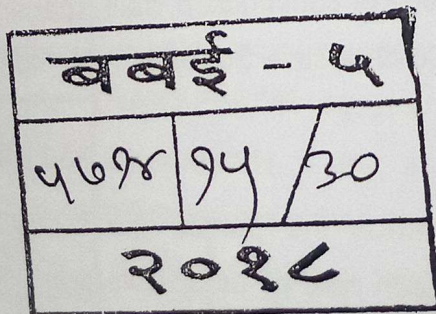 बबई - ५
५७१४ १५/३०
२०१८